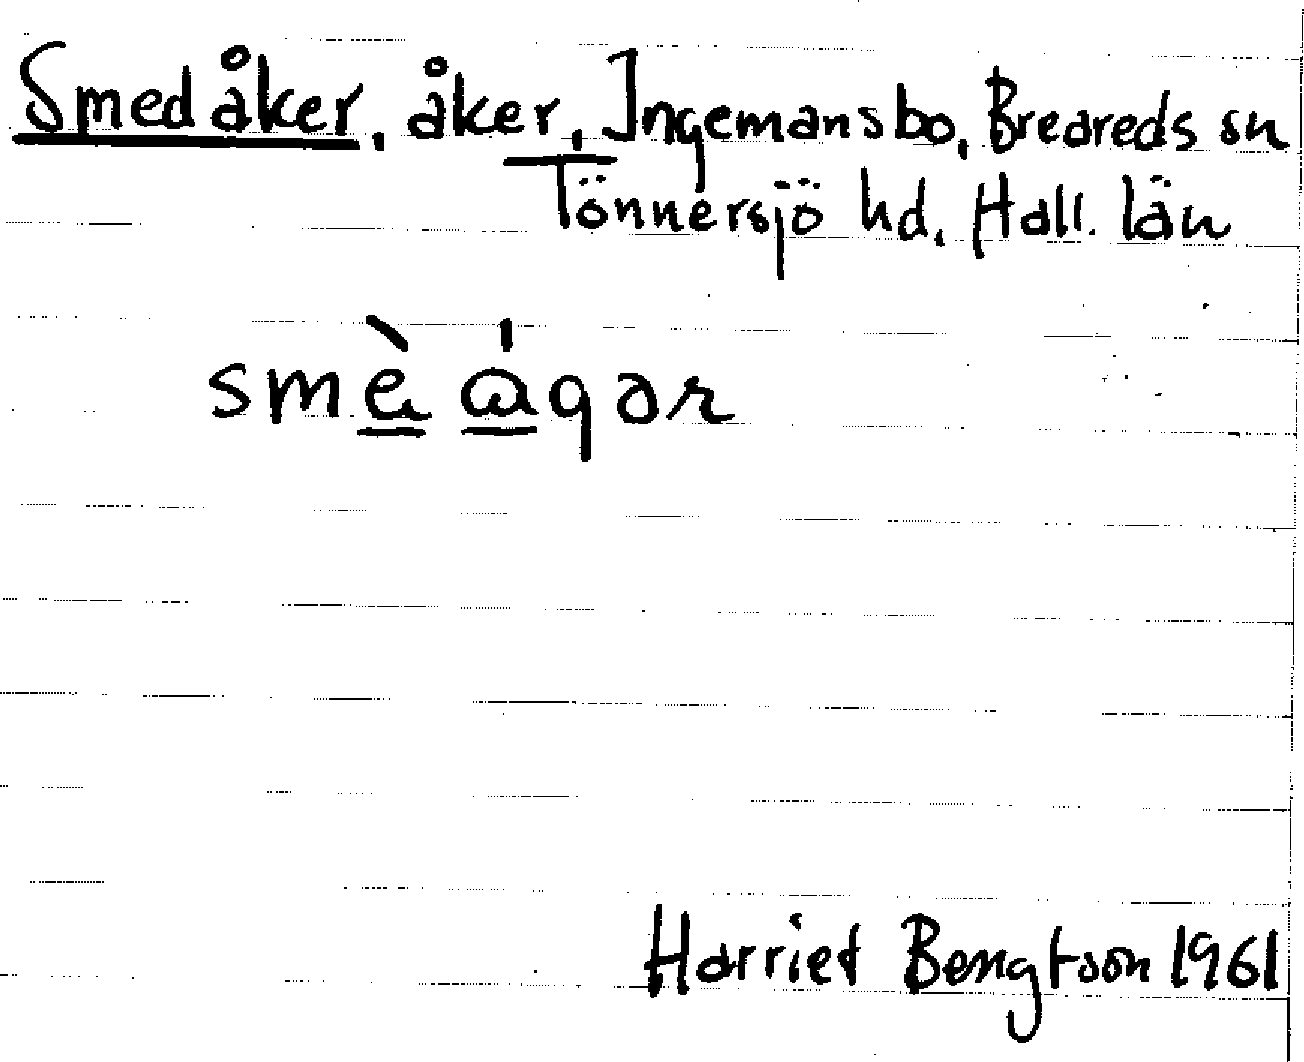 Smedåker, åker, Ingemansbo, Breareds sn
Tönnersjö hd, Hall. län
smè ágər
Harriet Bengtson 1961